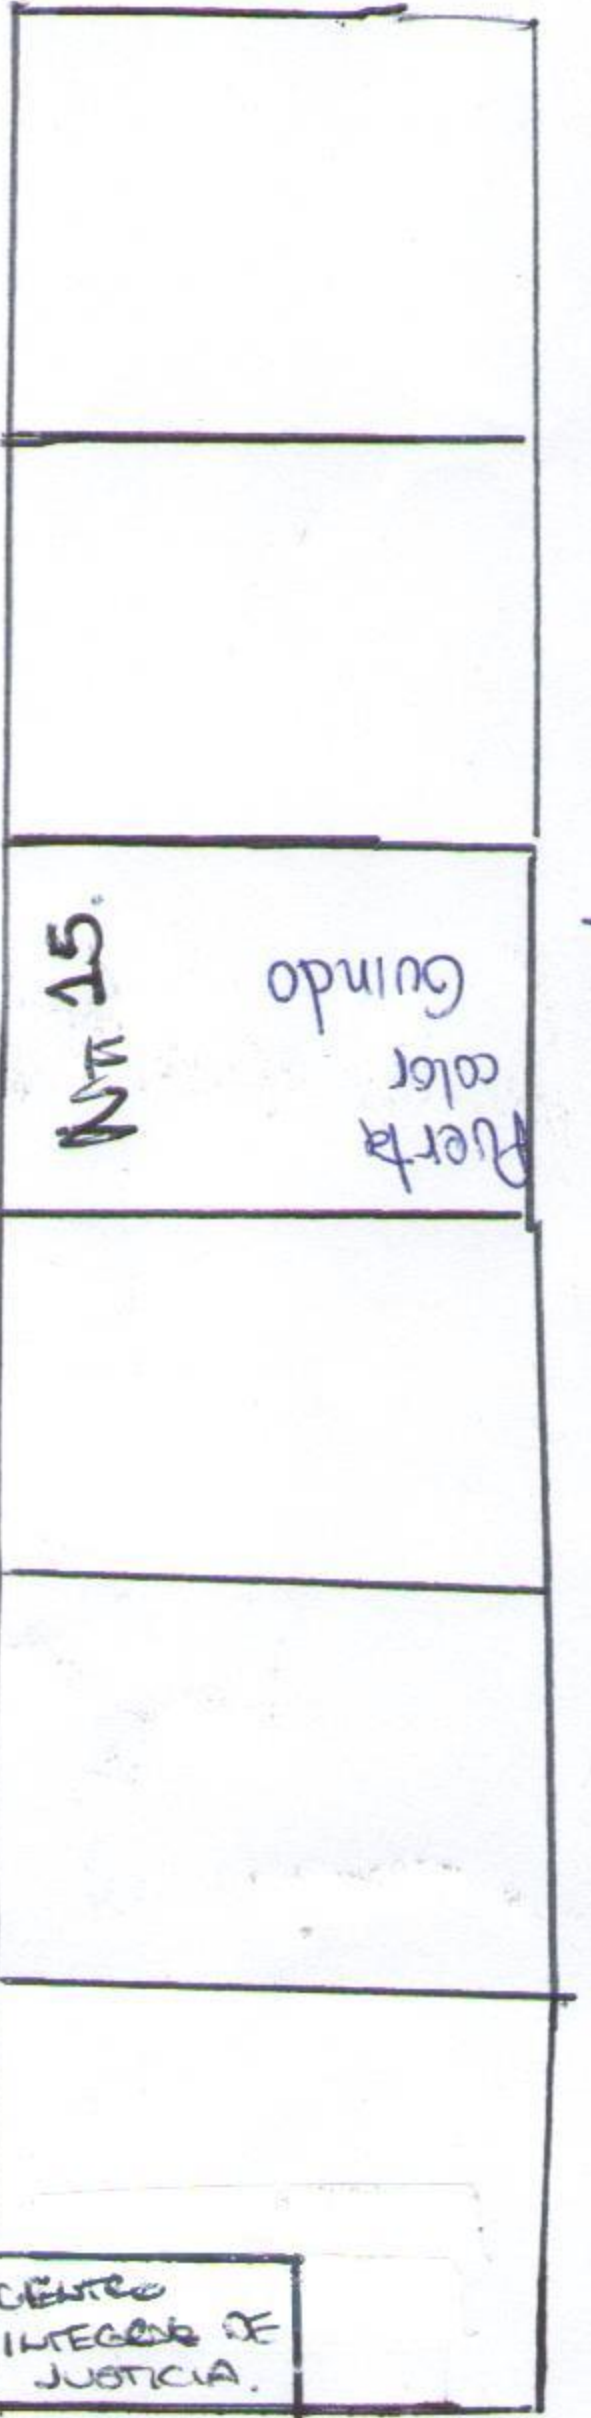 Nº 15.
Puerta
color
Guindo
CENTRO
INTEGRAL DE
JUSTICIA.